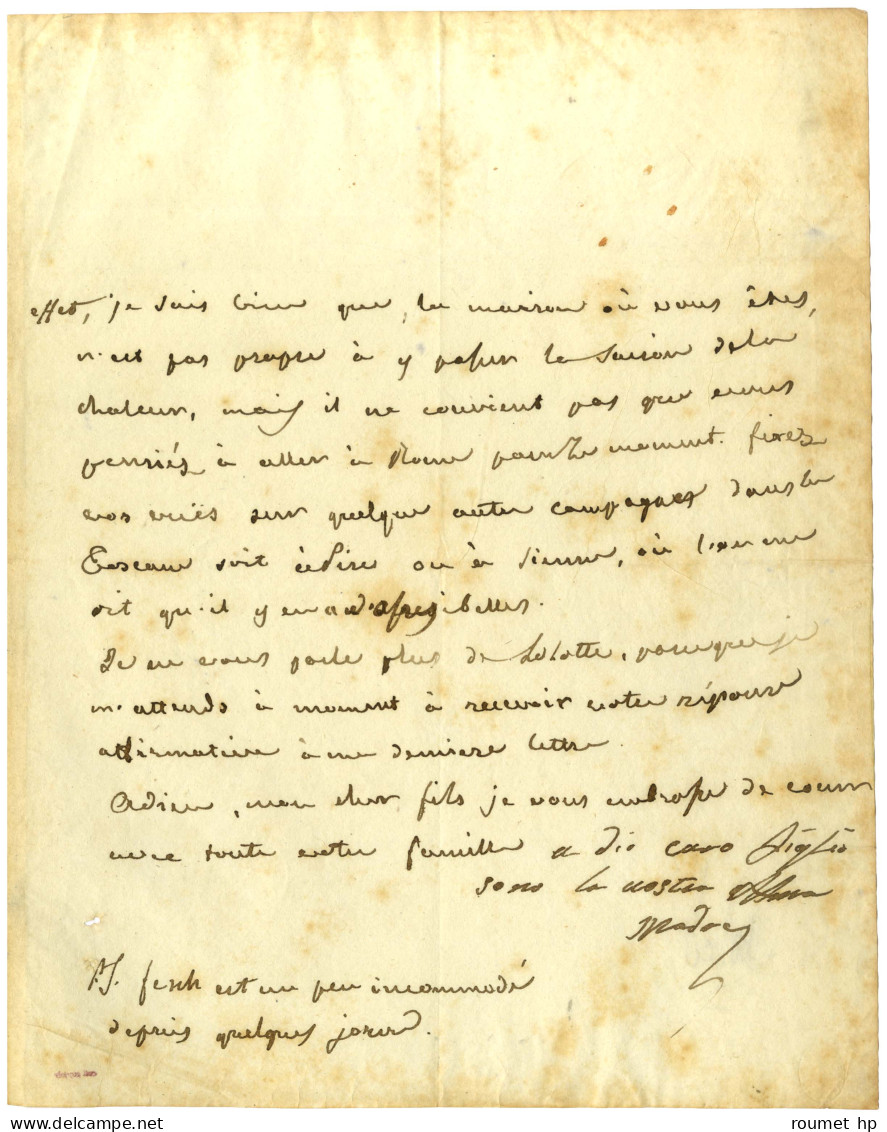 effet, je sais bien que, la maison où vous êtes,
n'est pas propre à y passer la saison de la
chaleur, mais il ne convient pas que vous
pensiés à aller à Rome pour le moment. fixez
vos vuës sur quelque autre campagnes dans la
Toscane soit à Pise ou à Sienne, où l'on me
dit qu'il y en a d'assez belles.
Je ne vous parle plus de Lolotte, parceque je
m'attends à moment à recevoir votre réponse
affirmative à ma derniere lettre.
Adieu, mon cher fils je vous embrasse de coeur
avec toute votre famille a dio caro figlio
sono la vostra
Madre
P.S. fesch est un peu incommodé
depuis quelques jours.
roumet hp